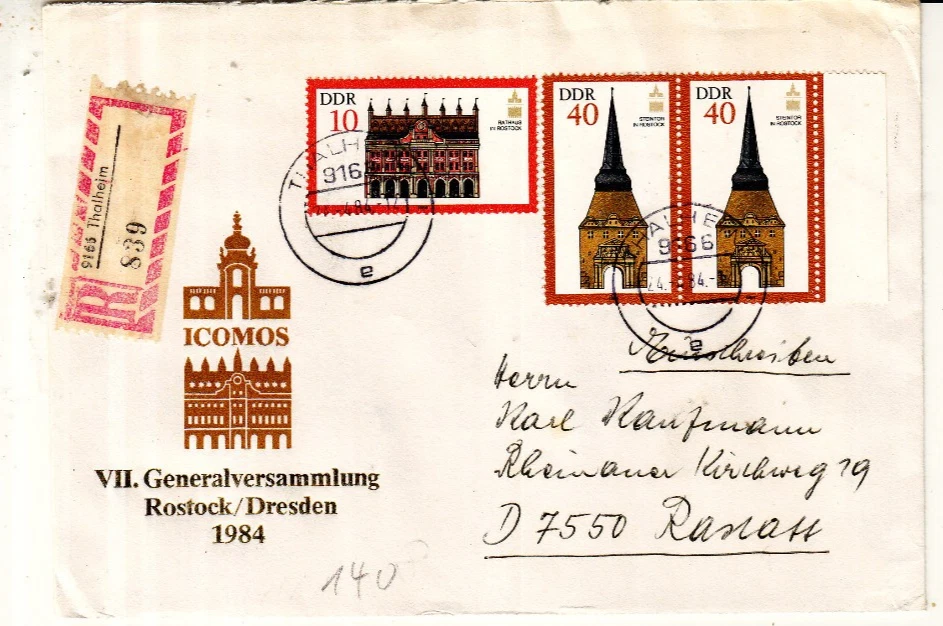 DDR
10
RATHAUS
IN ROSTOCK
DDR
40
STEINTOR
IN ROSTOCK
DDR
40
STEINTOR
IN ROSTOCK
THALHE
9166
24.-4.84.-14
e
THALHE
9166
24.-4.84.-
e
9166 Thalheim
R
839
ICOMOS
VII. Generalversammlung
Rostock/Dresden
1984
Einschreiben
Herrn
Karl Kaufmann
Rheinauer Kirchweg 19
D 7550 Rastatt
140